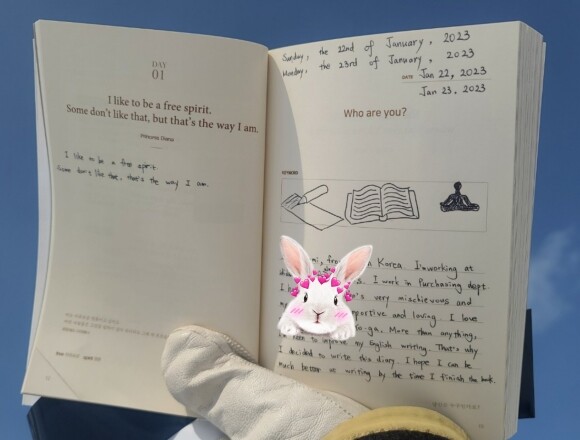 DAY
01
I like to be a free spirit.
Some don't like that, but that's the way I am.
Princess Diana
I like to be a free spirit.
Some don't like that, that's the way I am.
Sunday, the 22nd of January, 2023
Monday, the 23rd of January, 2023
DATE Jan 22, 2023
Jan 23. 2023
Who are you?
KEYWORD
Korea I'm working at
I work in Purchasing dept.
I very mischievous and
and loving. I love
More than anything,
my English writing. That's why
I decided to write this diary. I hope I can be
much better at writing by the time I finish the book.